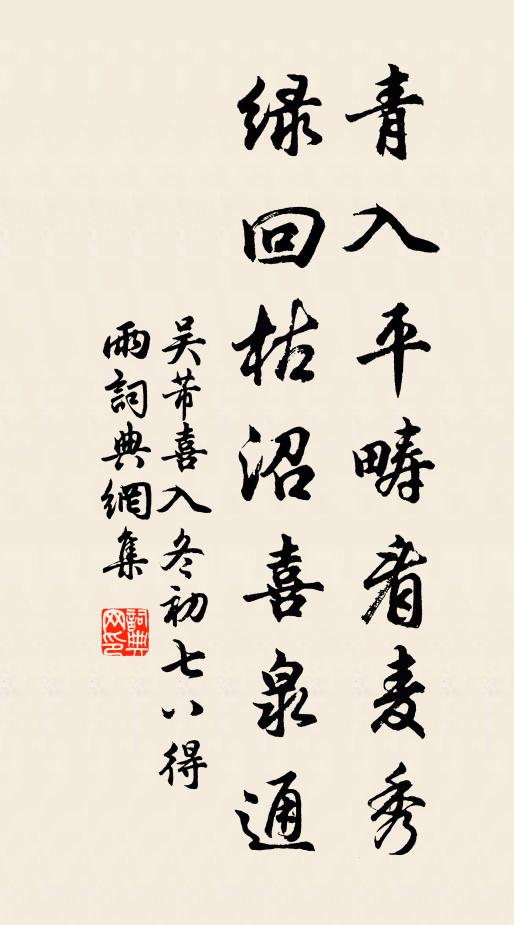 青入平畴看麦秀
绿回枯沼喜泉通
吴芾喜入冬初七八得
雨詞典網集
詞典
网印